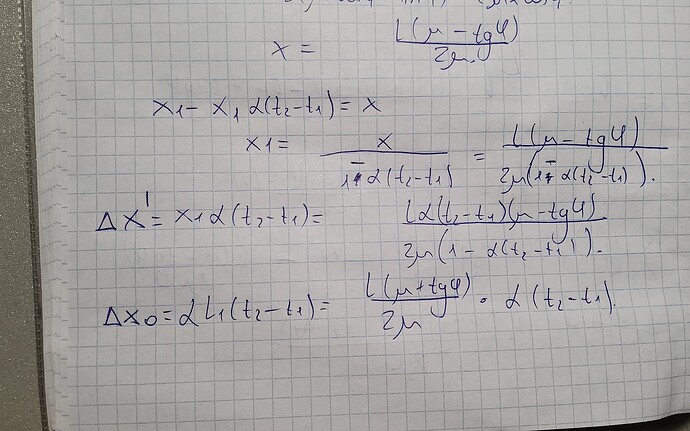 x = L(μ - tgφ) / 2μ
x1 - x1 α(t2 - t1) = x
x1 = x / (1 - α(t2 - t1)) = L(μ - tgφ) / 2μ(1 - α(t2 - t1)).
Δx' = x1 α(t2 - t1) = Lα(t2 - t1)(μ - tgφ) / 2μ(1 - α(t2 - t1)).
Δx0 = αL1(t2 - t1) = L(μ + tgφ) / 2μ · α(t2 - t1).